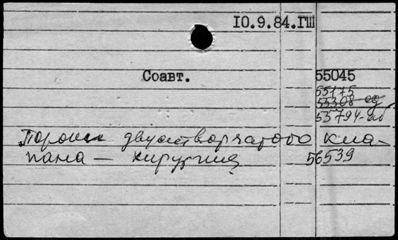 10.9.84.ГШ
Соавт.
55045
55175
55308-ед
55794-ед
Пороки двухстворчатого кла-
пана — хирургия 56539